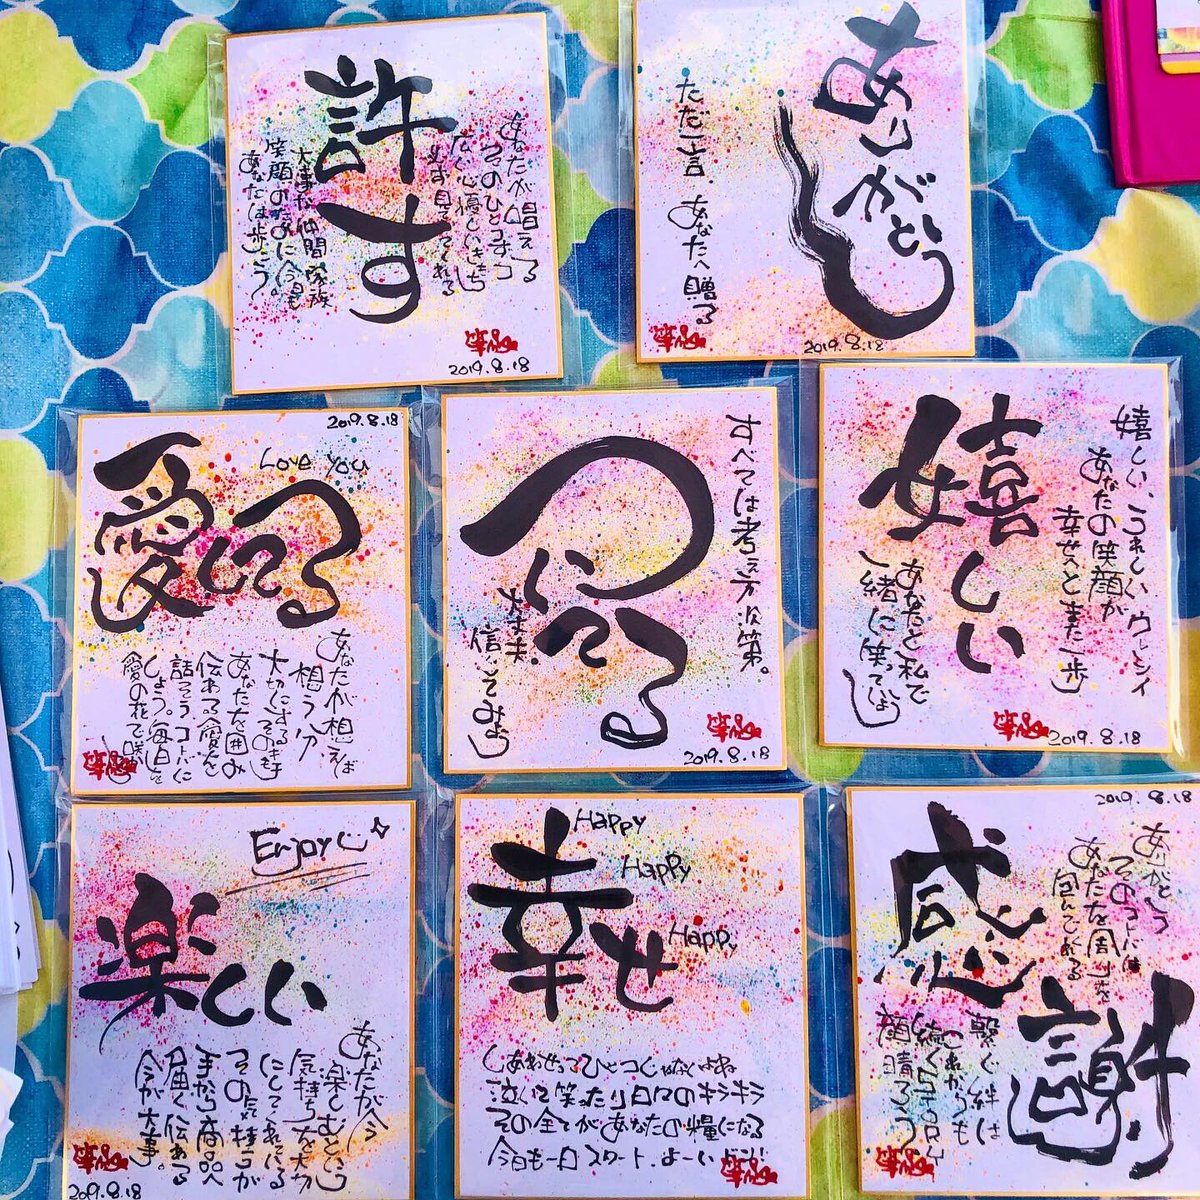 許す
あなたが唱える
そのひとことで
広い心優しいきもち
必ず見ててくれる
大事な仲間、家族
笑顔のために今日も
あなたは歩こう
2019.8.18
ありがとう
ただ一言、あなたへ贈る
2019.8.18
2019.8.18
愛してる
Love you
あなたが想えば
想う分
大切にする
あなたを囲み
伝わって
コトバに
しよう。毎日を
愛の花で
ついてる
すべては考え方次第。
大丈夫、
信じてみよう
2019.8.18
嬉しい
嬉しい、うれしいウレシイ
あなたの笑顔が
幸せへとまた一歩
あなたと私で
一緒に笑ってましょう
2019.8.18
楽しい
Enjoy
あなたが今
楽しむという
気持ちを大切
にしてくれている
その気持ちが
手から商品へ
届く伝わる
今が大事。
2019.8.18
幸せ
Happy
Happy
Happy
しあわせってひとつじゃないよね
泣いて笑ったり日々のキラキラ
その全てがあなたの糧になる
今日も一日スタート、よーいドン!
2019.8.18
感謝
ありがとう
そのコトバは
あなたを周りを
包んでくれる
繋ぐ絆は
これからも
続くSTORY
顔晴ろう